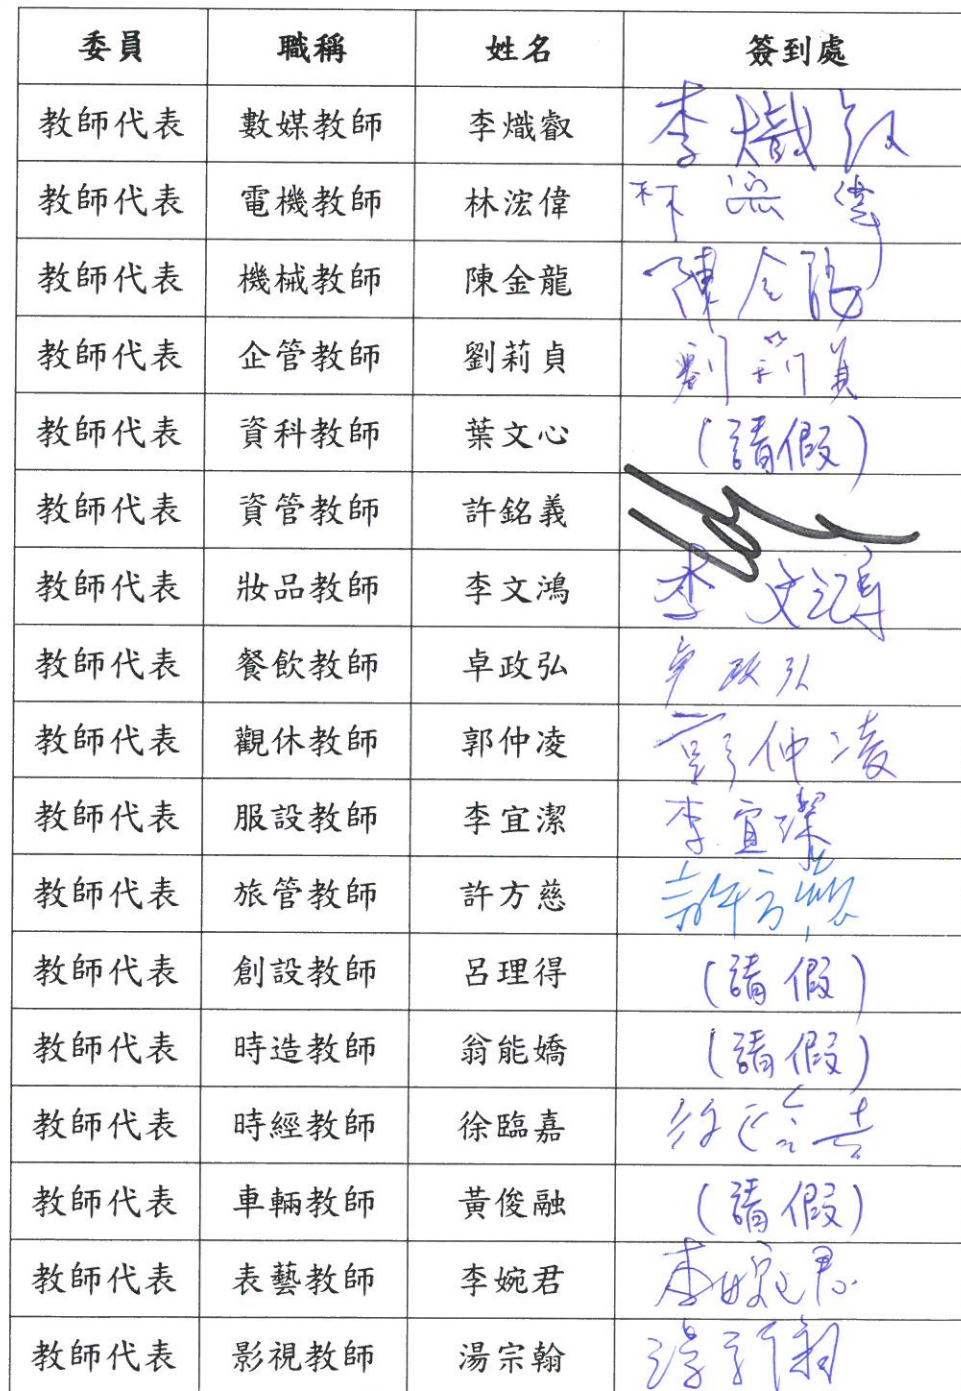 委員 職稱 姓名 簽到處
教師代表 數媒教師 李熾叡 李熾叡
教師代表 電機教師 林浤偉 林浤偉
教師代表 機械教師 陳金龍 陳金龍
教師代表 企管教師 劉莉貞 劉莉貞
教師代表 資科教師 葉文心 (請假)
教師代表 資管教師 許銘義
教師代表 妝品教師 李文鴻 李文鴻
教師代表 餐飲教師 卓政弘 卓政弘
教師代表 觀休教師 郭仲凌 郭仲凌
教師代表 服設教師 李宜潔 李宜潔
教師代表 旅管教師 許方慈 許方慈
教師代表 創設教師 呂理得 (請假)
教師代表 時造教師 翁能嬌 (請假)
教師代表 時經教師 徐臨嘉 徐臨嘉
教師代表 車輛教師 黃俊融 (請假)
教師代表 表藝教師 李婉君 李婉君
教師代表 影視教師 湯宗翰 湯宗翰